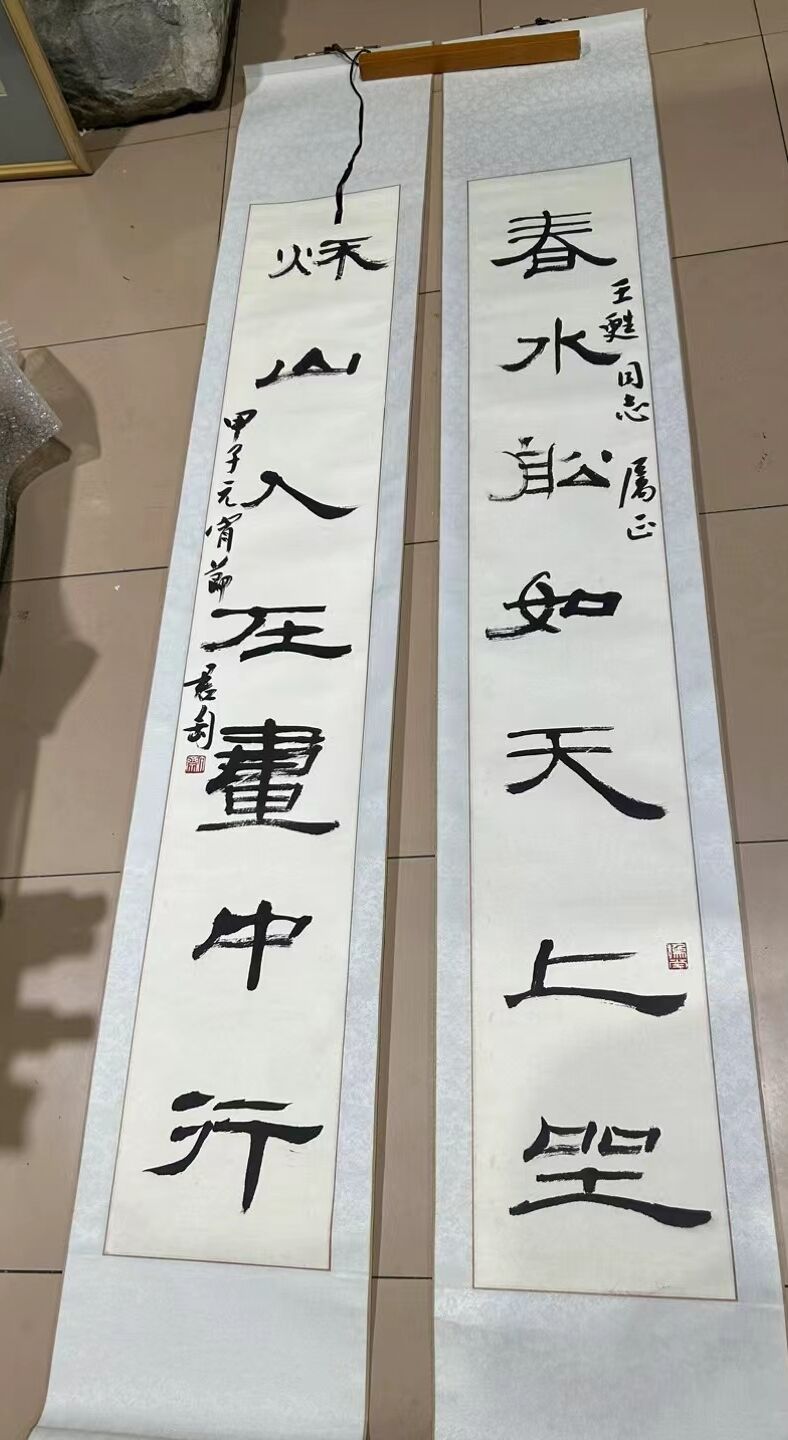 春水舩如天上坐
王甦同志 属正
秌山人在畫中行
甲子元宵節 君匋